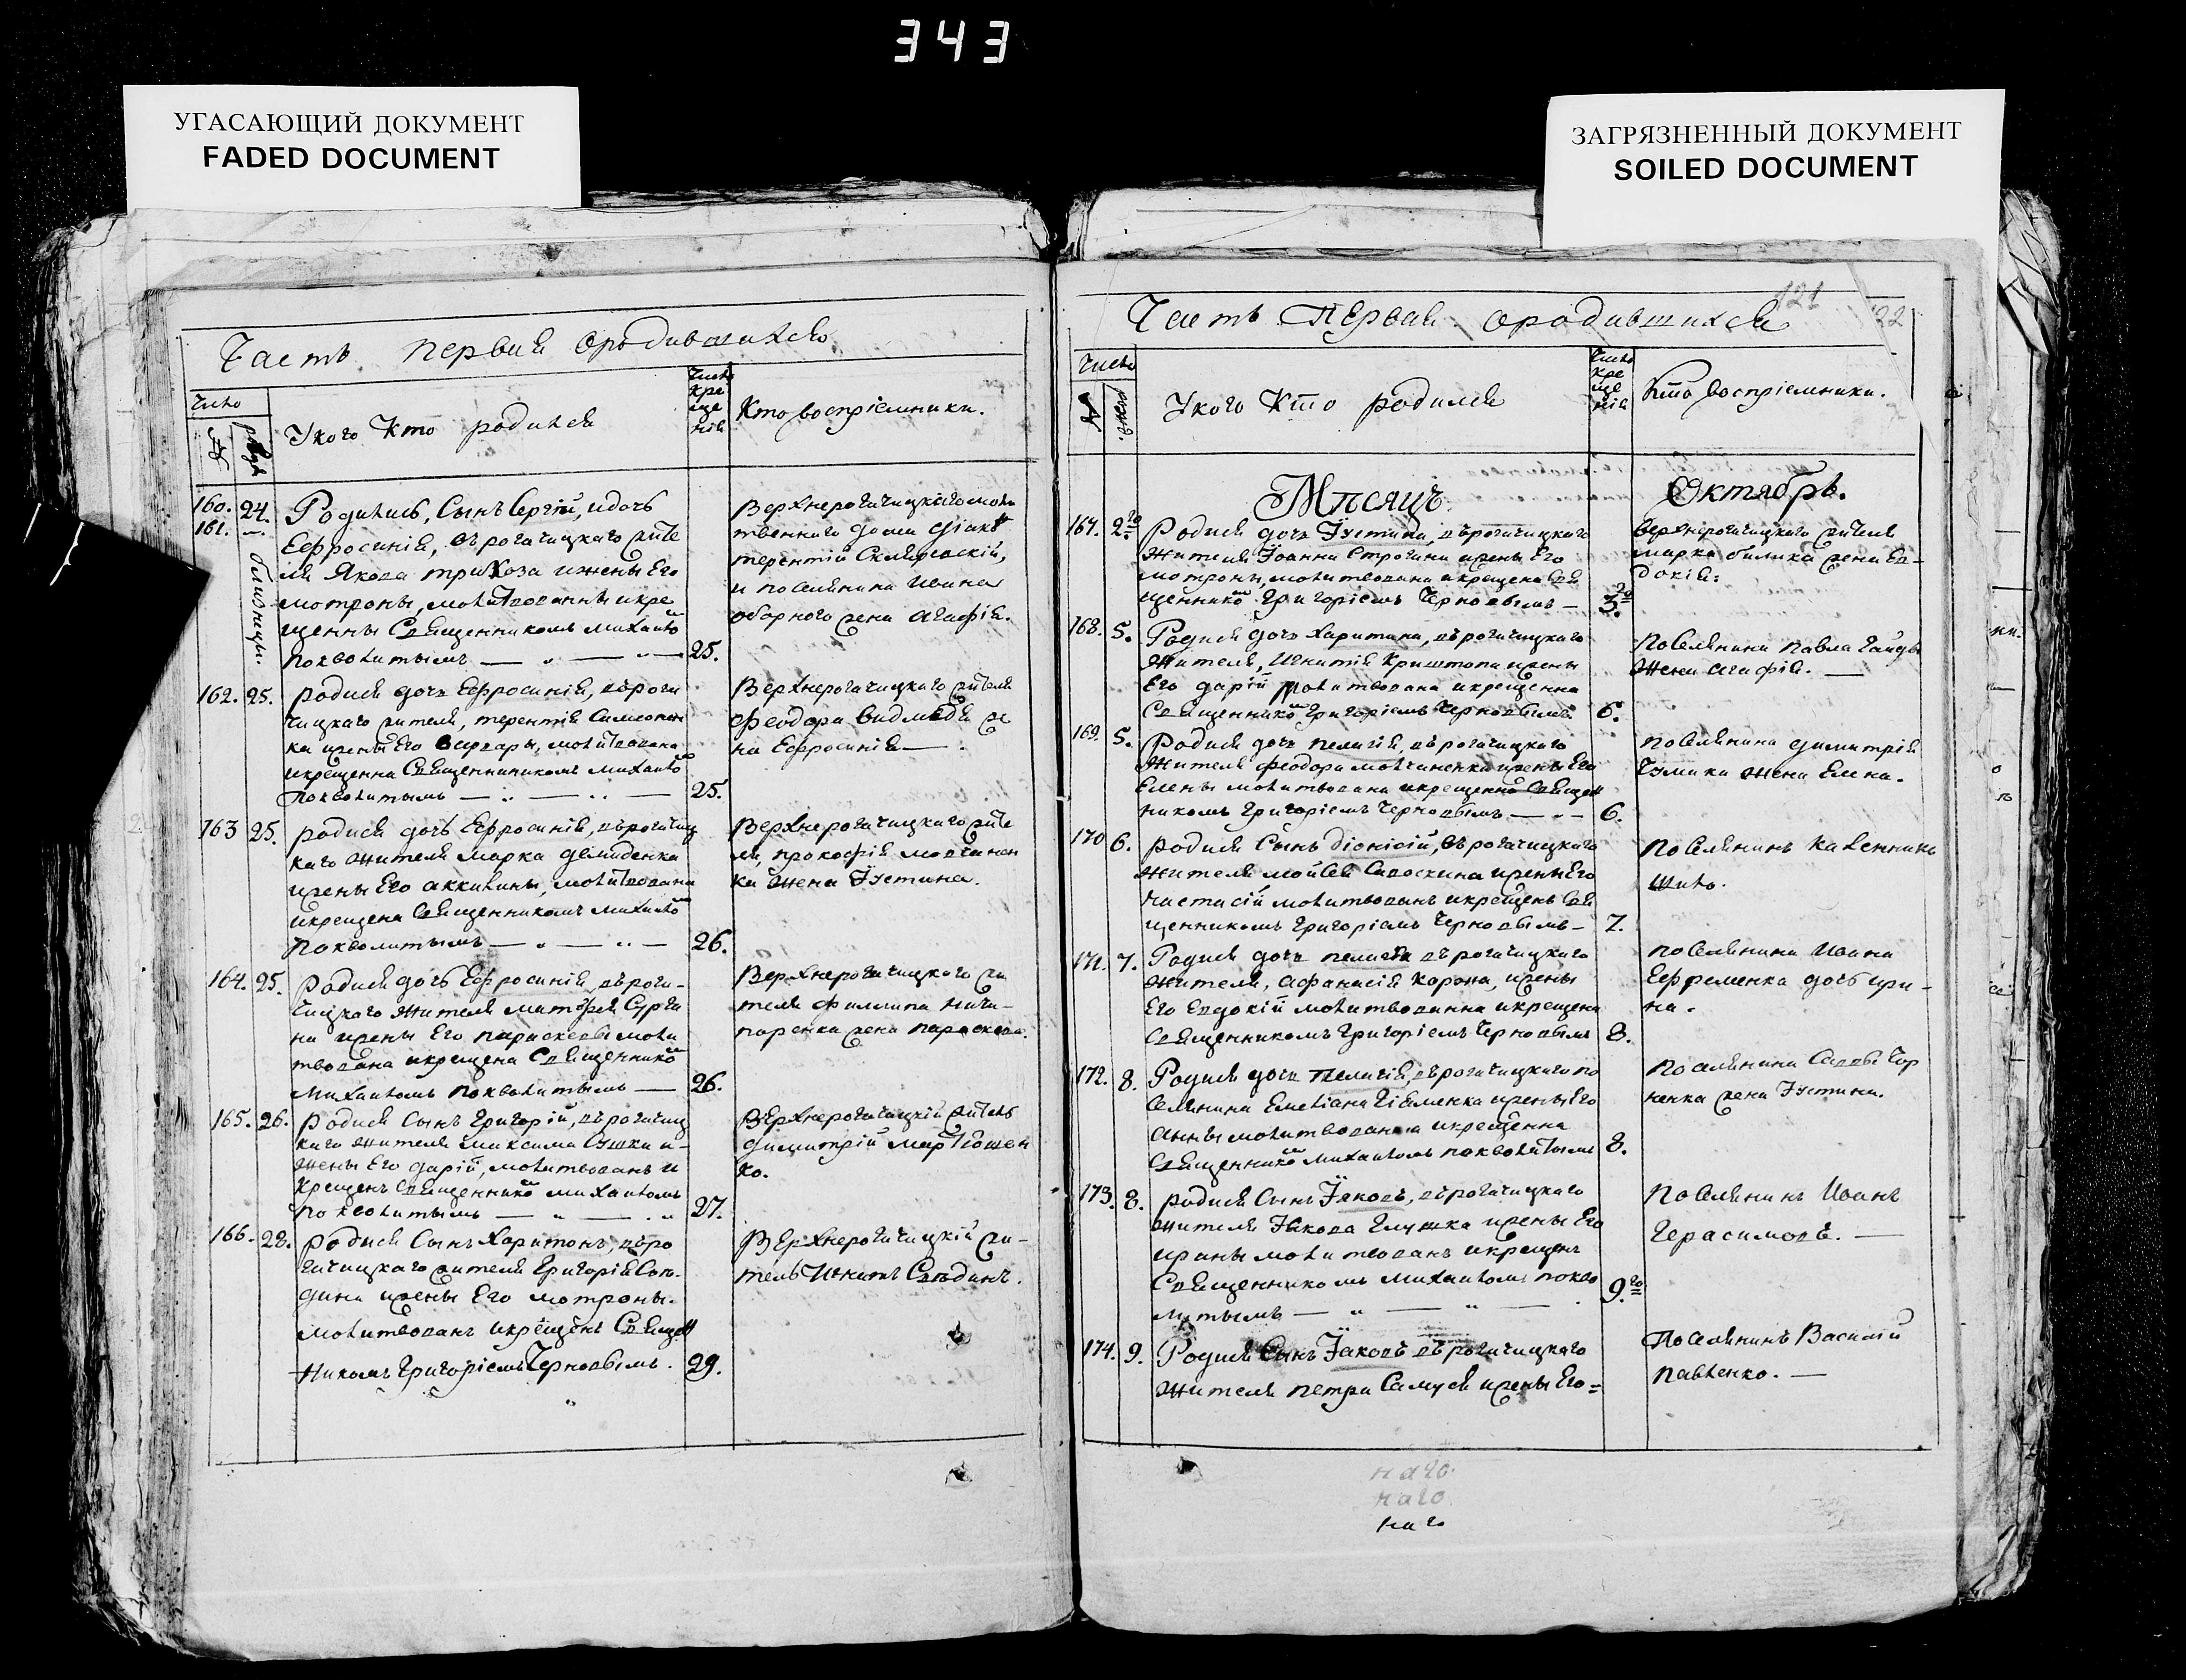 343
УГАСАЮЩИЙ ДОКУМЕНТ
FADED DOCUMENT
ЗАГРЯЗНЕННЫЙ ДОКУМЕНТ
SOILED DOCUMENT
Часть первая ородившихся
Число
У кого кто родился
Число
кре
ще
нія
Кто воспріемники.
160. 24. Родились, Сынъ Сергій, идочь
161. близнецы.
Евфросинія, вѣрогачицкаго жите
ля Якова трикоза ижены Его
мотроны, молитвованны икре
щенны Священникомъ михаило
похвалитымъ 25.
Верхнерогачицкаго моли
твеннаго дома
терентій
и поселянина ивана
жена агафія.
162. 25. родися дочь Евфросинія, вѣрога
чицкаго жителя, терентія
ка ижены Его варвары, молитвована
икрещенна Священникомъ михаило
похвалитымъ 25.
Верхнерогачицкаго жителя
феодора видмедя же
на Евфросинія
163 25. родися дочь Евфросинія, вѣрогачиц
каго жителя марка демиденка
ижены Его аккилины, молитвована
икрещена Священникомъ михаило
похвалитымъ 26.
Верхнерогачицкаго жите
ля, прокофія молчанен
ка жена Іустина.
164. 25. Родися дочь Евфросинія, вѣрога-
чицкаго жителя матфея Сурга
на ижены Его параскевы моли
твована икрещена Священнико
михаиломъ похвалитымъ 26.
Верхнерогачицкаго жи
теля филиппа ничи-
паренка жена параскева.
165. 26. родися Сынъ Григорій, вѣрогачиц
каго жителя максима Сушка и-
жены Его дарій, молитвованъ и
крещенъ Священнико михаиломъ
похвалитымъ 27.
Верхнерогачицкій житель
димитрій
ко.
166. 28. родися Сынъ Харитонъ, вѣро
гачицкаго жителя Григорія Сѣ-
дина ижены Его мотроны.
молитвованъ икрещенъ Свящеен
никомъ Григоріемъ Черновымъ. 29.
Верхнерогачицкій жи-
тель Игнатъ
121
122
Часть Первая ородившихся
Число
У кого кто родился
Число
кре
ще
нія
Кто воспріемники.
Мѣсяцъ Октябрь.
167. 2го Родися дочь Іустина, вѣрогачицкаго
жителя Іоанна Строгана ижены Его
мотроны, молитвована икрещена Свя
щеннико Григоріемъ Черновымъ 3го
Верхнерогачицкаго жителя
марка билика жена Ев-
докія:
168. 5. Родися дочь Харитина, вѣрогачицкаго
жителя, Игнатія Криштопа ижены
Его дарій молитвована икрещенна
Священнико Григоріемъ Черновымъ 6.
Поселянина павла гайды
жена агафія.
169. 5. Родися дочь пелагія, вѣрогачицкаго
жителя феодора молчаненка ижены Его
Елены молитвована икрещенна Свящеен
никомъ Григоріемъ Черновымъ 6.
поселянина димитрія
Чумака жена Елена.
170 6. родися Сынъ діонісій, вѣрогачицкаго
жителя мойсея Савоскина ижены Его
настасій молитвованъ икрещенъ Свя
щенникомъ Григоріемъ Черновымъ 7.
поселянинъ каленникъ
шило.
171. 7. Родися дочь пелагія вѣрогачицкаго
жителя, афанасія Корона, ижены
Его Евдокій молитвованна икрещена
Священникомъ Григоріемъ Черновымъ 8.
поселянина ивана
Ефременка дочь ири-
на.
172. 8. Родися дочь пелагія, вѣрогачицкаго по
селянина Емеліана ижены Его
анны молитвованна икрещенна
Священнико михаиломъ похвалитымъ 8.
поселянина Саввы Чор
ненка жена Іустина.
173. 8. родися Сынъ Іаковъ, вѣрогачицкаго
жителя Іякова Глушка ижены Его
ирины молитвованъ икрещенъ
Священникомъ михаиломъ похва
литымъ 9го
поселянинъ Иванъ
Герасимовъ.
174. 9. Родися Сынъ Іаковъ вѣрогачицкаго
жителя петра Самуся ижены Его=
Поселянинъ Василій
павленко.
наго
наго
наго